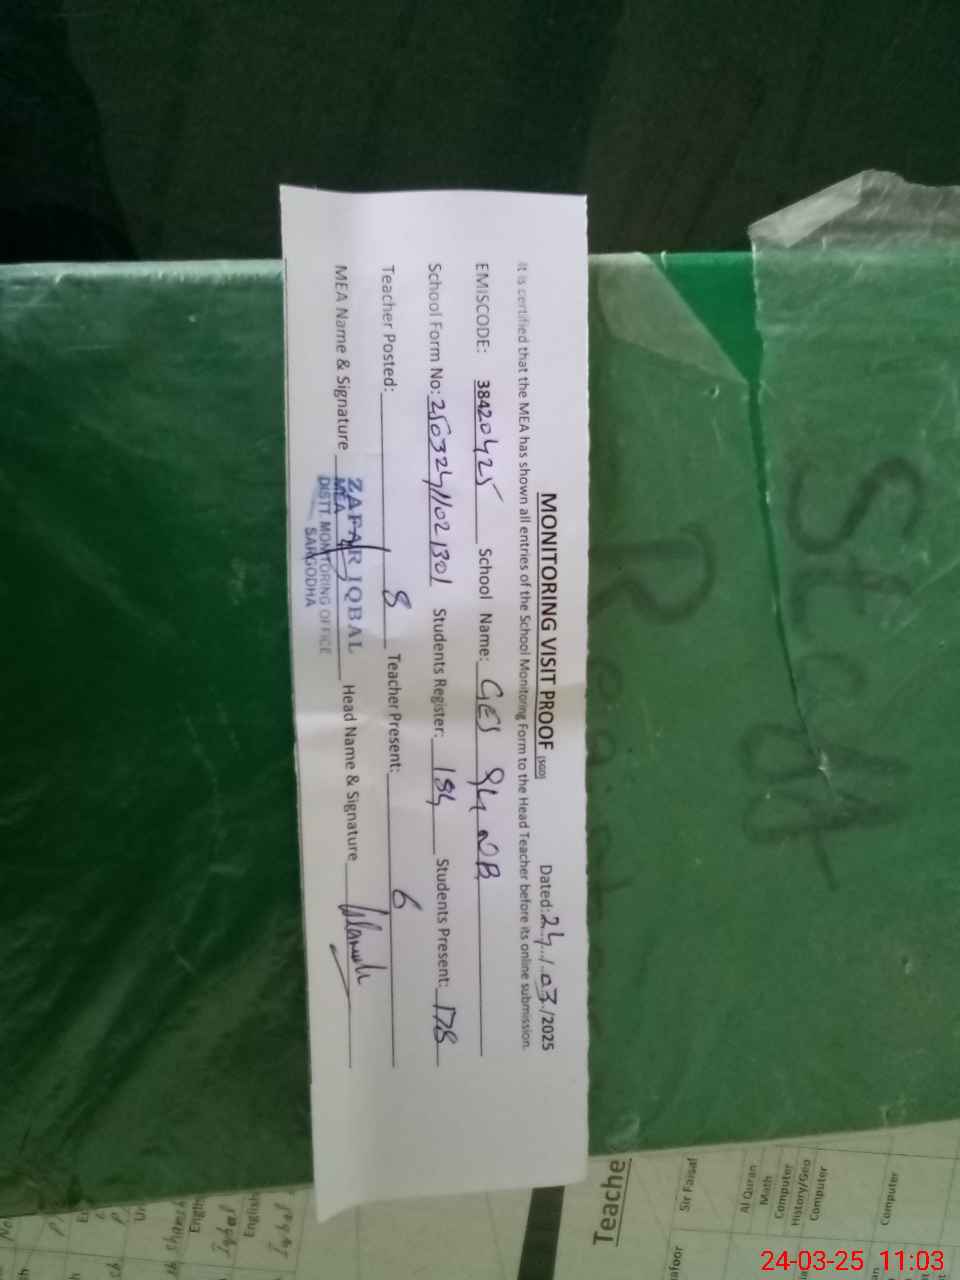 MONITORING VISIT PROOF (SGD) Dated: 24/03/2025
It is certified that the MEA has shown all entries of the School Monitoring Form to the Head Teacher before its online submission.
EMISCODE: 38420425 School Name: GES 94 NB
School Form No: 25032411021301 Students Register: 184 Students Present: 178
Teacher Posted: 8 Teacher Present: 6
MEA Name & Signature Head Name & Signature
ZAFAR IQBAL
MEA
DISTT. MONITORING OFFICE
SARGODHA
Teache
Sir Faisal
Al Quran
Math
Computer
History/Geo
Computer
Computer
24-03-25 11:03